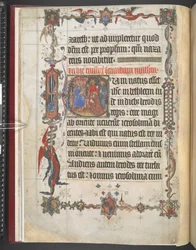 zareth: ut adimpleretur quod
dictum est per prophetam: quia naza
reus vocabitur.
um natus esset
iesus in bethleem iu
de in diebus herodis
regis: ecce magi
ab oriente venerunt ierosolimam di
centes ubi est qui natus est rex iu
deorum: Vidimus enim stellam eius
in oriente: et venimus adorare eum.
Audiens autem herodes rex turba
tus est: et omnis ierosolima cum